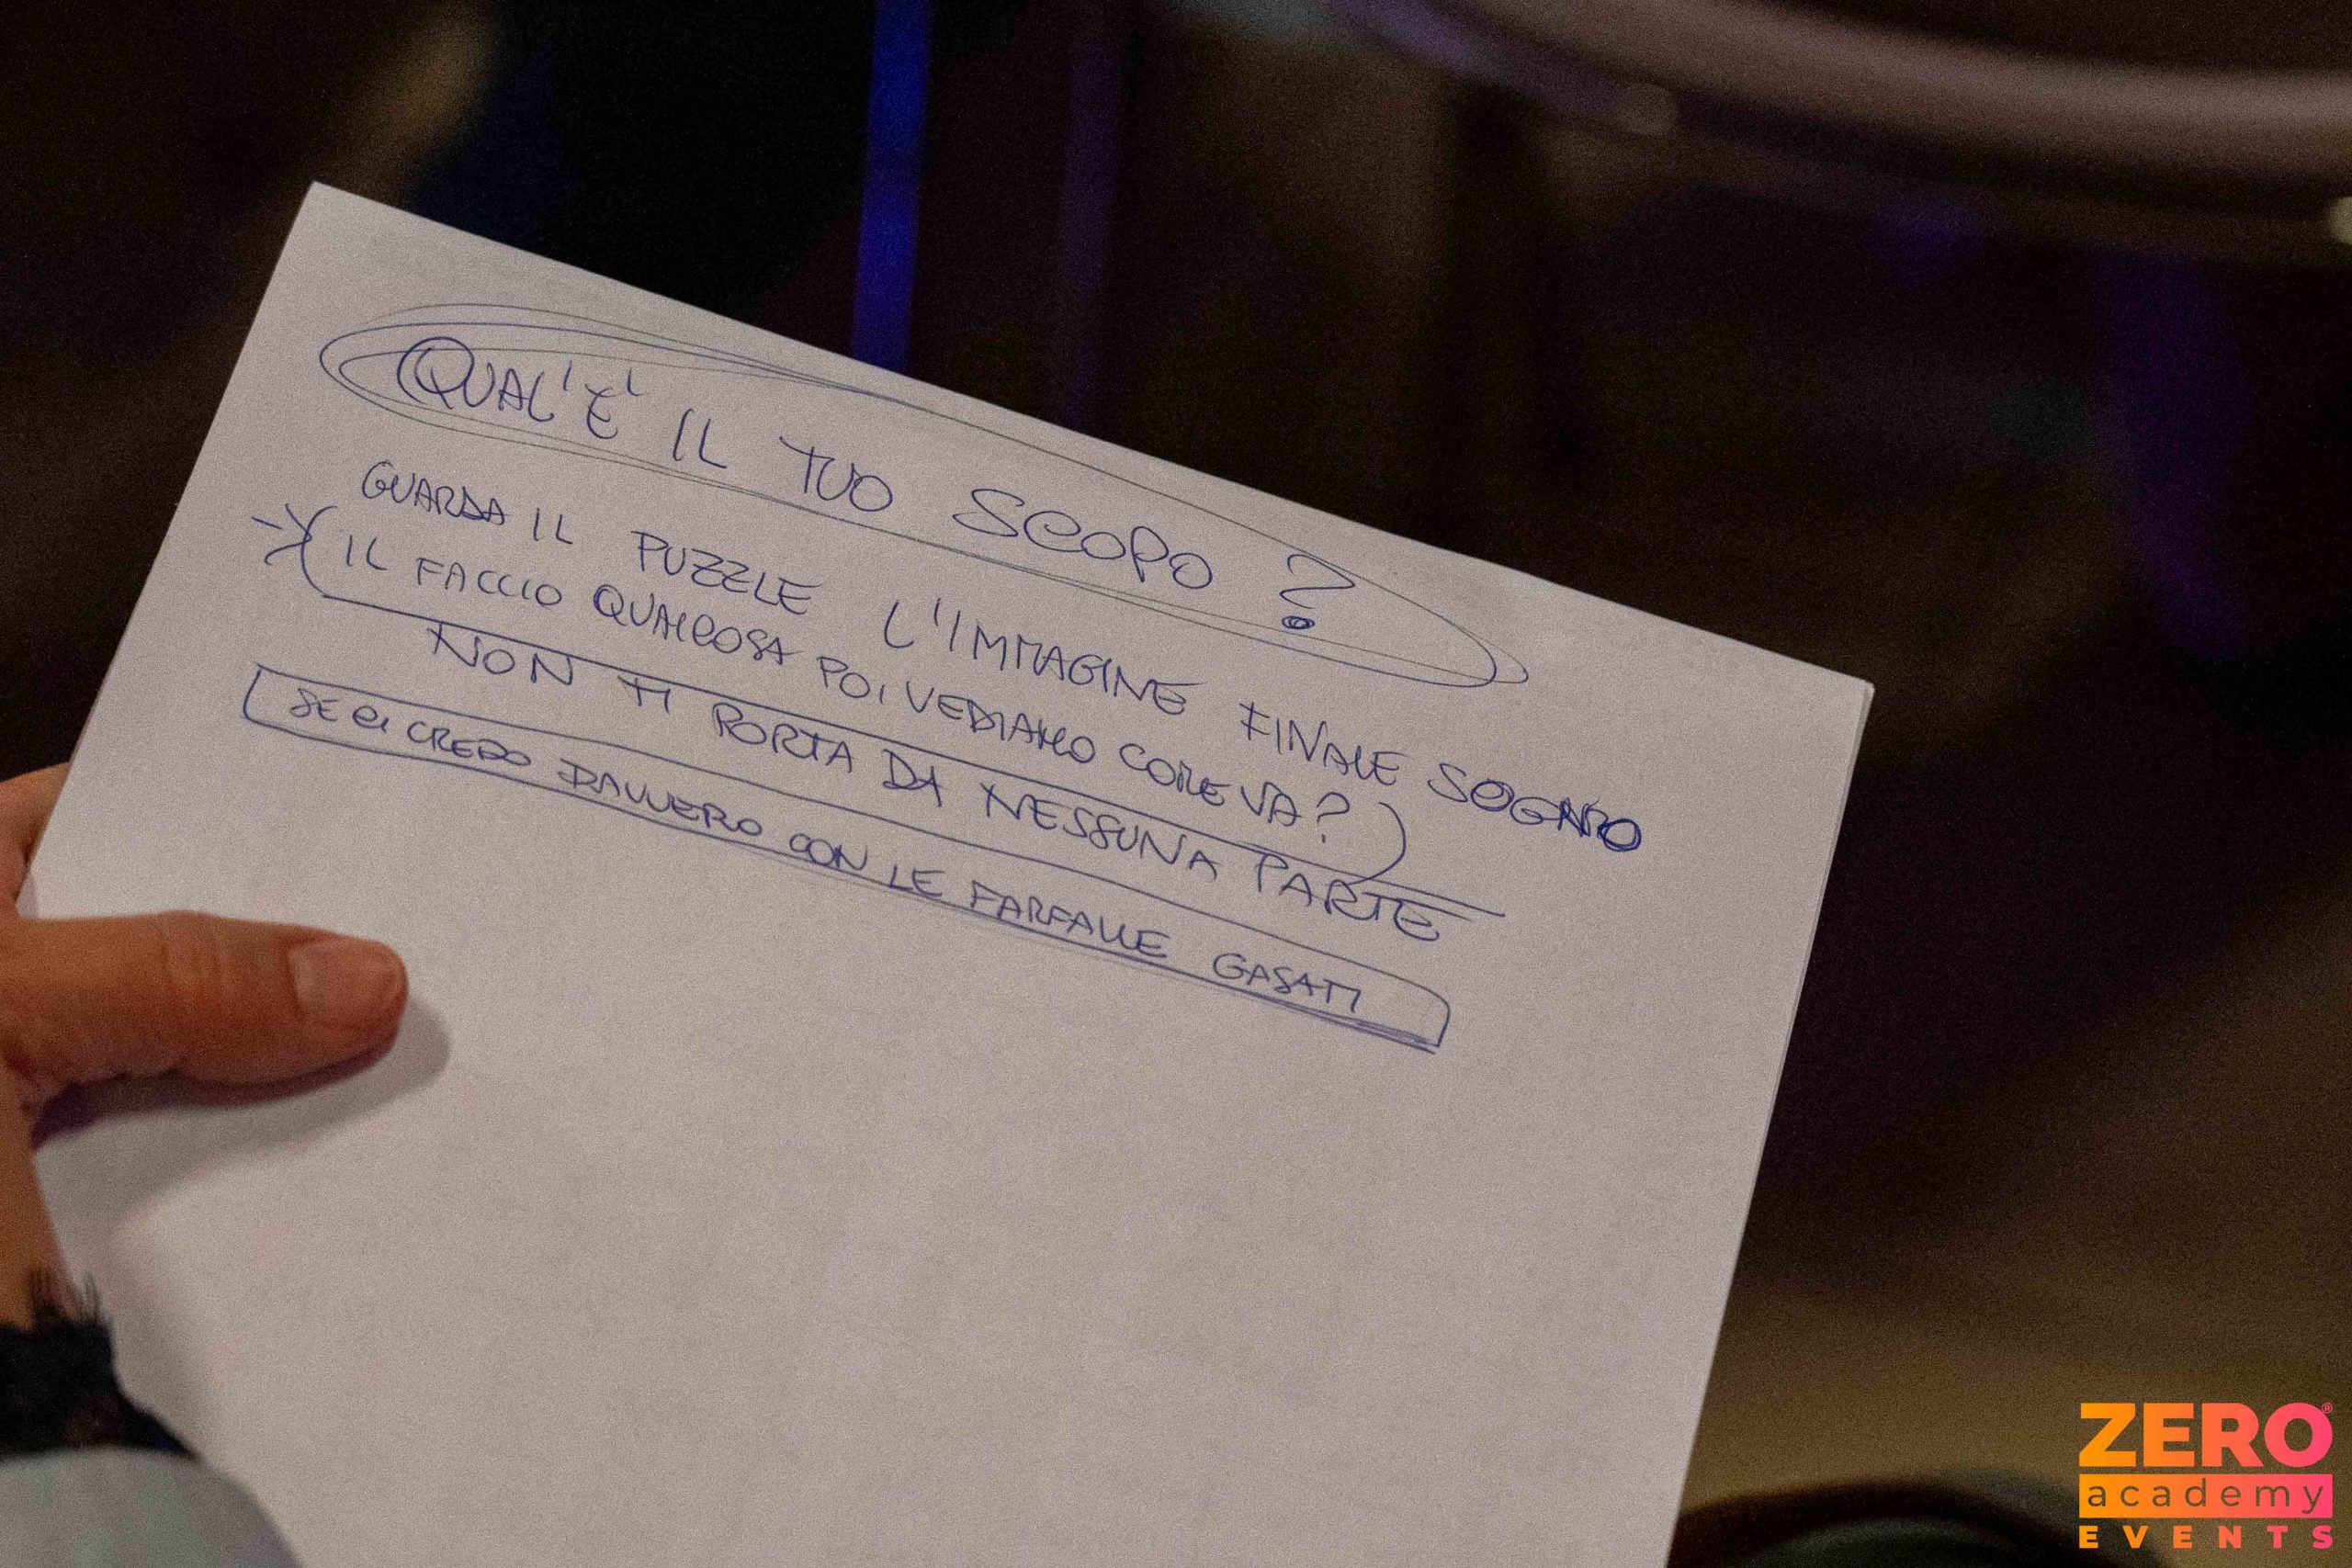 QUAL'È IL TUO SCOPO?
GUARDA IL PUZZLE L'IMMAGINE FINALE SOGNO
→ (IL FACCIO QUALCOSA POI VEDIAMO COME VA?)
NON TI PORTA DA NESSUNA PARTE
SE CI CREDO DAVVERO CON LE FARFALLE GASATI
ZERO®
academy
EVENTS